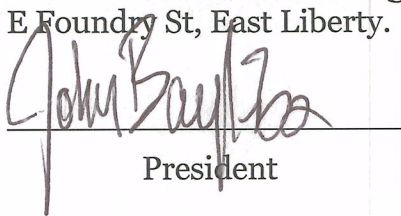 E Foundry St, East Liberty.
John Bayliss
President